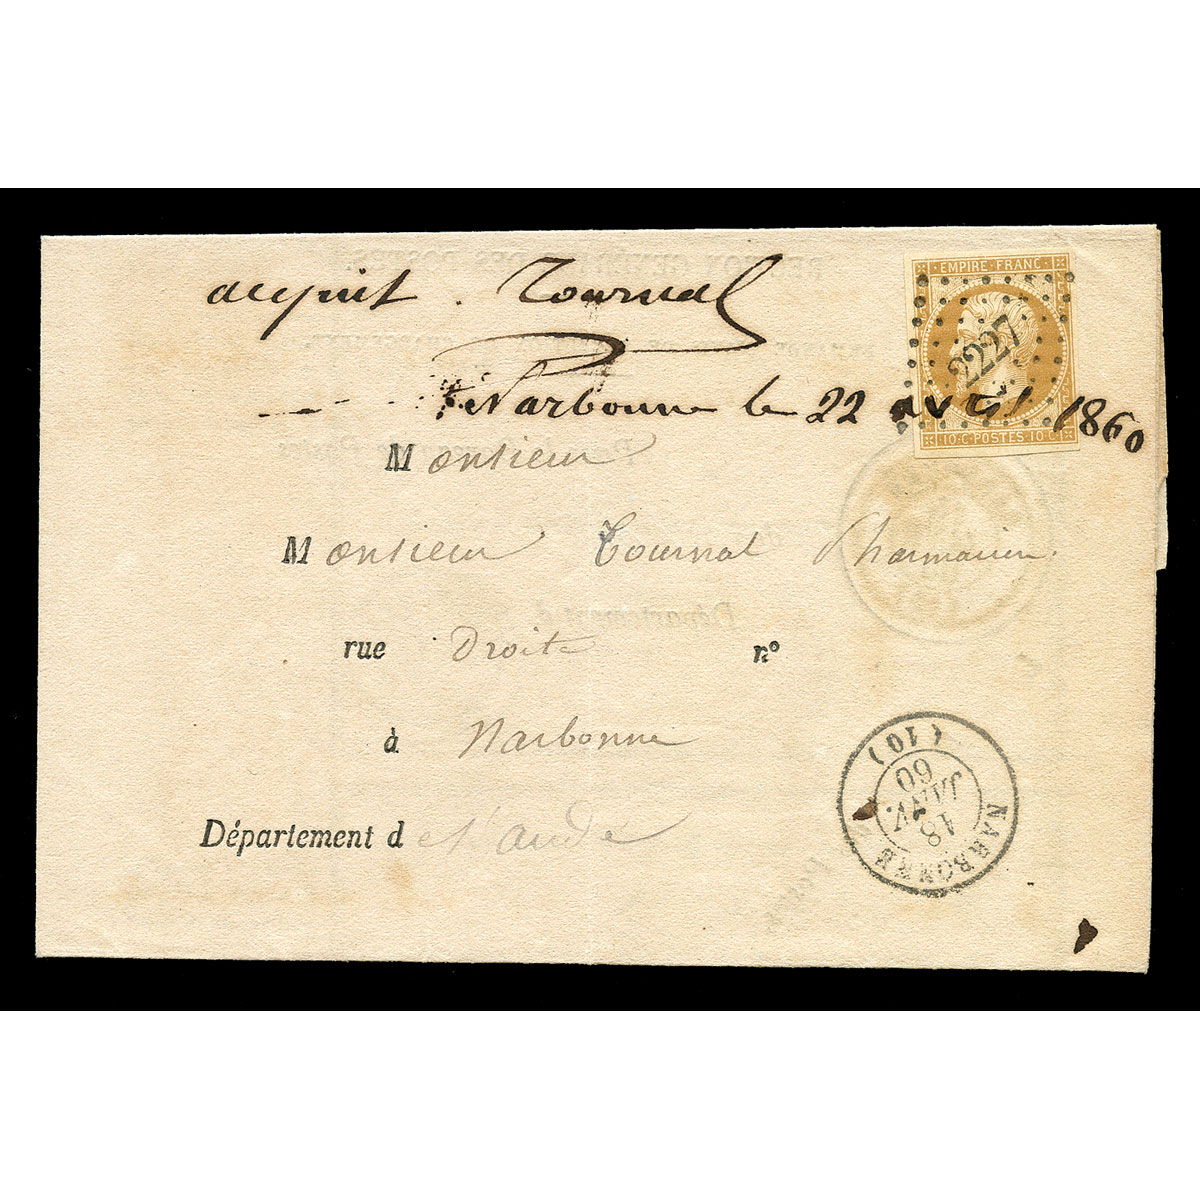 EMPIRE FRANC
acquit . Tournal
2227
Narbonne le 22 avril 1860
10 C POSTES 10 C
Monsieur
Monsieur Tournal Pharmacien
rue Droite n°
à Narbonne
Département de l'aude
NARBONNE
18
JANV.
60
(10)